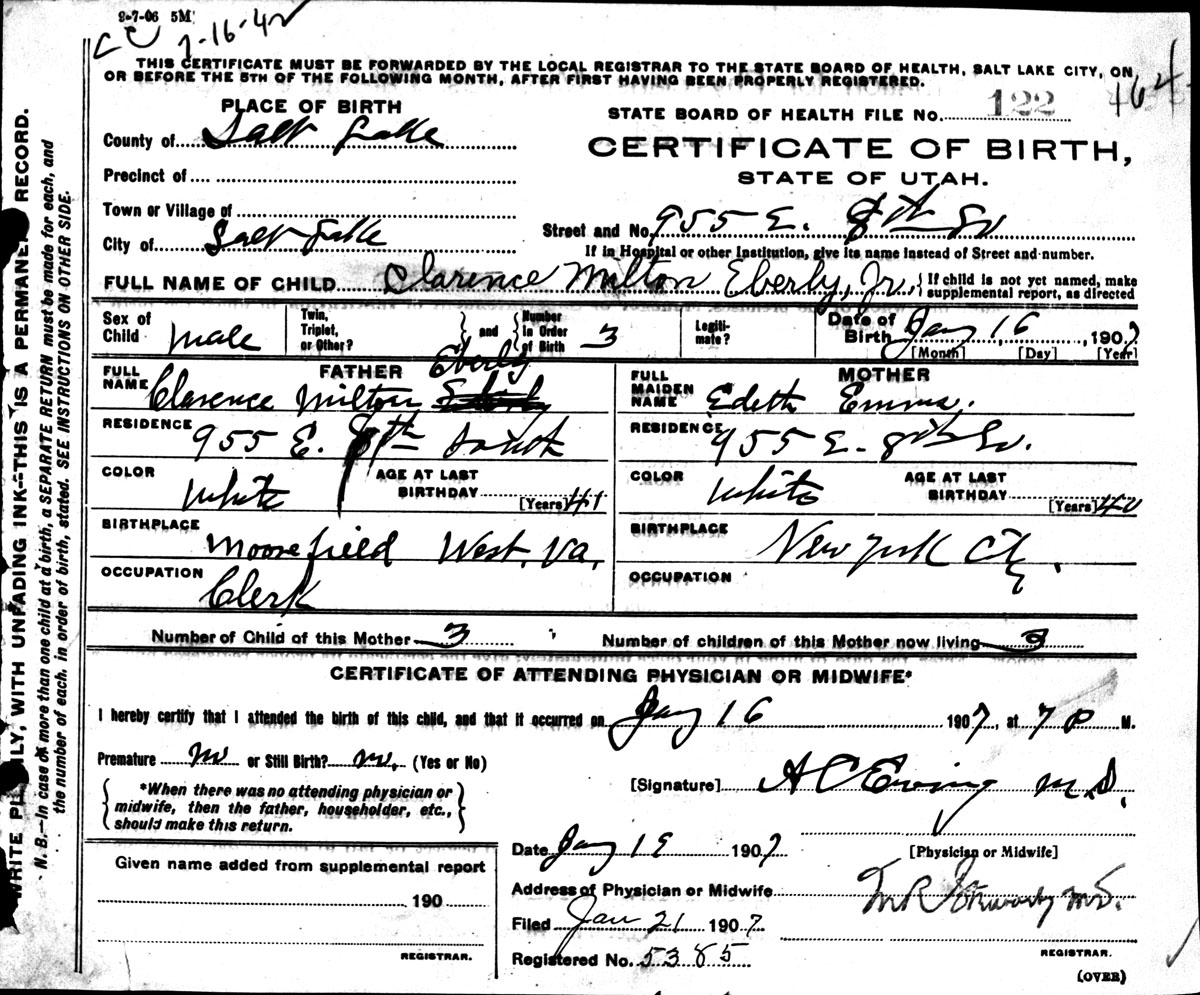 9-7-06 5M
7-16-42
THIS CERTIFICATE MUST BE FORWARDED BY THE LOCAL REGISTRAR TO THE STATE BOARD OF HEALTH, SALT LAKE CITY, ON
OR BEFORE THE 5TH OF THE FOLLOWING MONTH, AFTER FIRST HAVING BEEN PROPERLY REGISTERED.
PLACE OF BIRTH
STATE BOARD OF HEALTH FILE NO. 122 464
County of Salt Lake
CERTIFICATE OF BIRTH,
Precinct of
STATE OF UTAH.
Town or Village of
Street and No. 955 E. 8th So
City of Salt Lake
If in Hospital or other Institution, give its name instead of Street and number.
FULL NAME OF CHILD Clarence Milton Eberly, Jr. If child is not yet named, make
supplemental report, as directed
Sex of Child Male
Twin, Triplet, or Other? and Number in Order of Birth 3
Legiti-mate?
Date of Birth Jany 16, 1907
[Month] [Day] [Year]
FATHER
FULL NAME Clarence Milton Eberly
RESIDENCE 955 E. 8th South
COLOR White AGE AT LAST BIRTHDAY [Years] 41
BIRTHPLACE Moorefield West. Va.
OCCUPATION Clerk
MOTHER
FULL MAIDEN NAME Edeth Emma.
RESIDENCE 955 E. 8th So.
COLOR White AGE AT LAST BIRTHDAY [Years] 40
BIRTHPLACE New York City.
OCCUPATION
Number of Child of this Mother 3 Number of children of this Mother now living 3
CERTIFICATE OF ATTENDING PHYSICIAN OR MIDWIFE*
I hereby certify that I attended the birth of this child, and that it occurred on Jany 16 1907, at 7 P M.
Premature no or Still Birth? no. (Yes or No)
*When there was no attending physician or
midwife, then the father, householder, etc.,
should make this return.
[Signature] A C Ewing M.D.
[Physician or Midwife]
Given name added from supplemental report
190
REGISTRAR.
Date Jany 19 1907
Address of Physician or Midwife
Filed Jan 21 1907
Registered No. 5385
M.D.
REGISTRAR.
(OVER)
WRITE PLAINLY, WITH UNFADING INK—THIS IS A PERMANENT RECORD.
N. B.—In case of more than one child at a birth, a SEPARATE RETURN must be made for each, and
the number of each, in order of birth, stated. SEE INSTRUCTIONS ON OTHER SIDE.